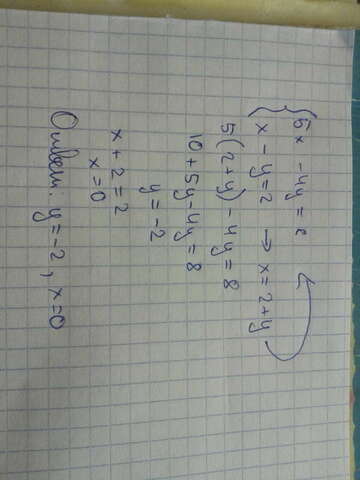 5x - 4y = 8
x - y = 2 → x = 2 + y
5(2+y) - 4y = 8
10 + 5y - 4y = 8
y = -2
x + 2 = 2
x = 0
Ответ: y = -2, x = 0